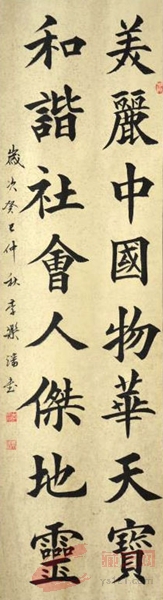 美麗中國物華天寶
和諧社會人傑地靈
歲次癸巳仲秋李樂潘書